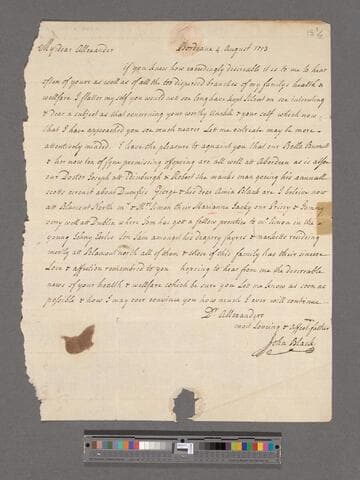 13½
My dear Allexander Bordeaux 4 August 1753
if you knew how exceedingly desireable it is to me to hear
often of yours as well as of all the tor dispersed branches of my family's health &
wellfare I flatter my self you would not see long have kept silent on soe interesting
& dear a subject as that concerning your worthy Unckle & your self which now
that I have approached you soe much nearer Let me entreate may be more
attentively minded I have the pleasure to acquaint you that our Bella Burnett
& her now ten of fyne promising ofspring are all well att Aberdeen as is also
our Doctor Joseph att Edinburgh & Robert the making man going his annuall
scotts circuit about Dumfries George & his dear Amia Black are I beleive now
att Blamont North Mr & Mrs Simon their Marianna Jacky our Prissy & Fanny
very well att Dublin where Sam has got a fellow prentice to Mr Simon in the
young Johny Leslie Son Sam amongst his drapery &
merily att Blamont north all of them & others of this family has their sincere
Love & affection remembred to you hopeing to hear from me the desireable
news of your health & wellfare which be sure you Let me know as soon as
possible & how I may ever convince you how much I ever will continue
Dr Allexander
most Loveing & affect father
John Black